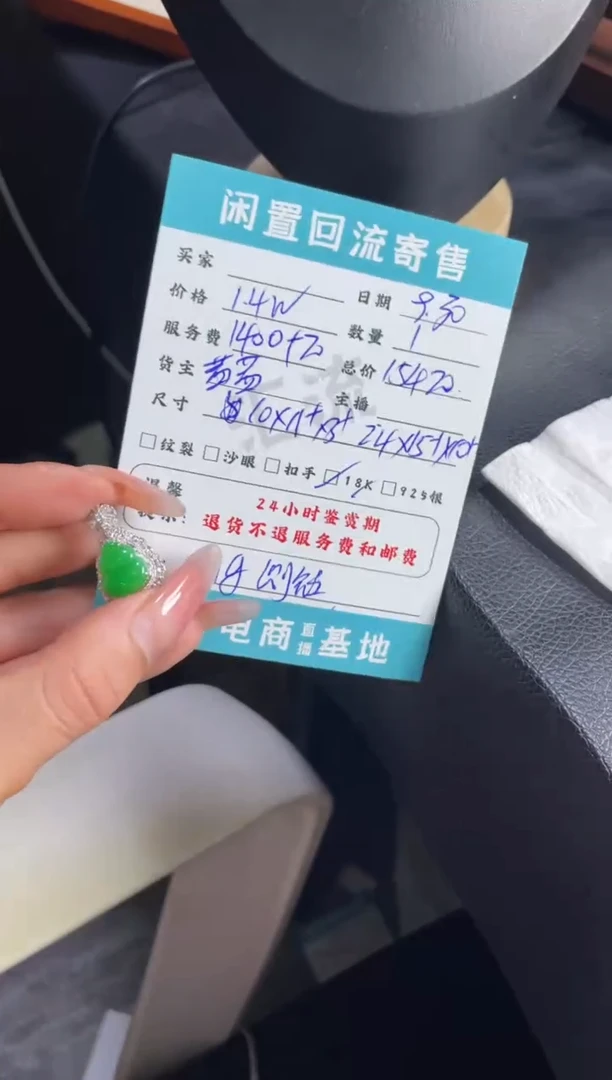 闲置回流寄售
买家 日期 9.30
价格 1.4W 数量 1
服务费 1400+20 总价 15420
货主 主播
尺寸 10×11+×3+ 24×15+×10+
□纹裂 □沙眼 □扣手 ☑18K □925银
温馨
提示:
24小时鉴赏期
退货不退服务费和邮费
电商直播基地